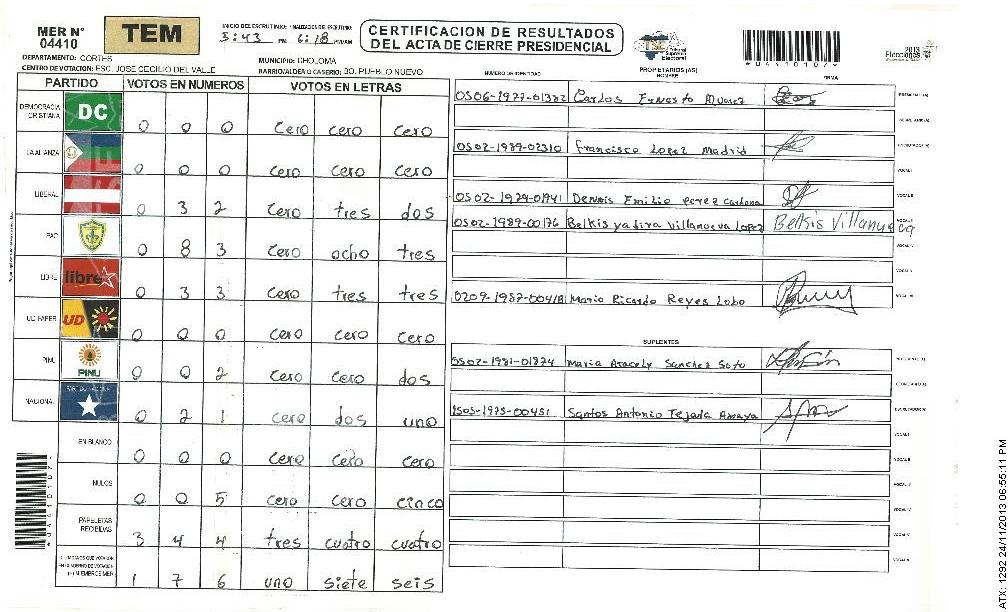 MER N°
04410
TEM
INICIO DEL ESCRUTINIO: FINALIZACION DEL ESCRUTINIO:
3:43 PM 6:18 PM/AM
CERTIFICACION DE RESULTADOS
DEL ACTA DE CIERRE PRESIDENCIAL
TSE Tribunal Supremo Electoral
2013
Elecciones
DEPARTAMENTO: CORTES
MUNICIPIO: CHOLOMA
CENTRO DE VOTACION: ESC. JOSE CECILIO DEL VALLE
BARRIO/ALDEA O CASERIO: BO. PUEBLO NUEVO
PARTIDO VOTOS EN NUMEROS VOTOS EN LETRAS
DEMOCRACIA CRISTIANA DC 0 0 0 Cero cero Cero
LA ALIANZA 0 0 0 Cero Cero Cero
LIBERAL 0 3 2 Cero tres dos
PAC 0 8 3 Cero ocho tres
LIBRE libre 0 3 3 Cero tres tres
UD FAPER UD 0 0 0 Cero Cero Cero
PINU PINU 0 0 2 Cero Cero dos
NACIONAL 0 2 1 Cero dos uno
EN BLANCO 0 0 0 Cero Cero Cero
NULOS 0 0 5 Cero Cero cinco
PAPELETAS RECIBIDAS 3 4 4 tres cuatro cuatro
CIUDADANOS QUE VOTARON EN CUADERNO DE VOTACION (+) MIEMBROS MER 1 7 6 uno siete seis
NUMERO DE IDENTIDAD PROPIETARIOS (AS) NOMBRE FIRMA
0506-1977-01382 Carlos Ernesto Alvarez PRESIDENTE(A)
SECRETARIO(A)
0502-1989-02310 Francisco Lopez Madrid ESCRUTADOR(A)
VOCAL I
0502-1979-01941 Dennis Emilio Perez Cardona VOCAL II
0502-1989-00176 Belkis yadira villanueva Lopez Belkis Villanueva
0209-1987-00418 Mario Ricardo Reyes Lobo
SUPLENTES
0502-1981-01874 Maria Aracely Sanchez Soto
1505-1975-00451 Santos Antonio Tejada Amaya ESCRUTADOR(A)
VOCAL I
VOCAL II
ATX: 1292 24/11/2013 06:55:11 PM